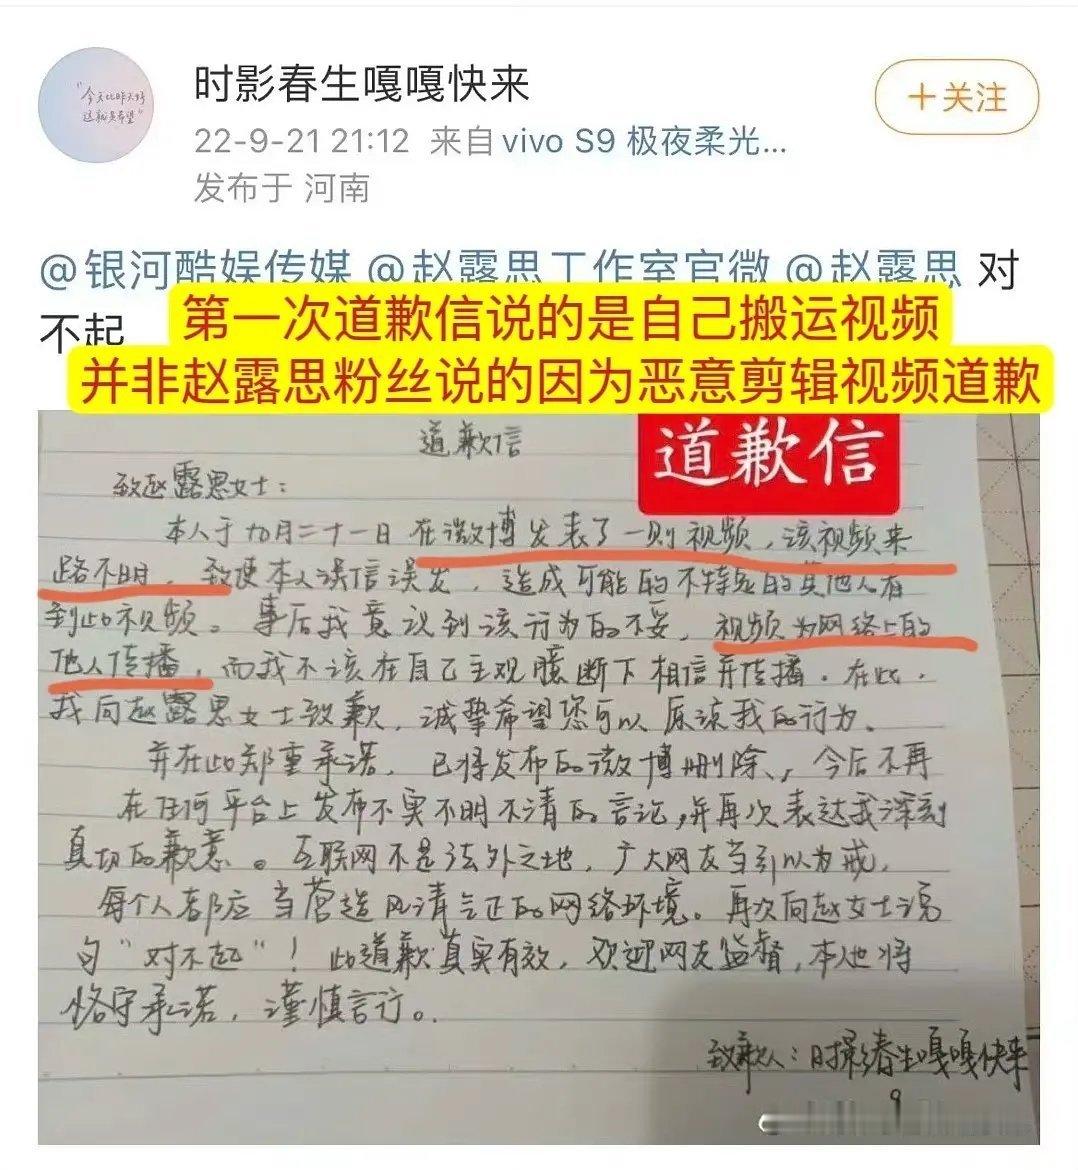 "今天比昨天好
这就是希望"
时影春生嘎嘎快来
+关注
22-9-21 21:12 来自 vivo S9 极夜柔光...
发布于 河南
@银河酷娱传媒 @赵露思工作室官微 @赵露思 对
不起
第一次道歉信说的是自己搬运视频
并非赵露思粉丝说的因为恶意剪辑视频道歉
道歉信
道歉信
致赵露思女士：
本人于九月二十一日在微博发表了一则视频，该视频来
路不明，致使本人误信误发，造成可能的不特定的其他人看
到此视频。事后我意识到该行为的不妥，视频为网络上的
他人传播，而我不该在自己主观臆断下相信并传播。在此，
我向赵露思女士致歉，诚挚希望您可以原谅我的行为。
并在此郑重承诺，已将发布的微博删除，今后不再
在任何平台上发布不实不明不清的言论，并再次表达我深刻
真切的歉意。互联网不是法外之地，广大网友当引以为戒，
每个人都应当营造风清气正的网络环境。再次向赵女士说
句"对不起"！此道歉真实有效，欢迎网友监督，本人也将
恪守承诺，谨慎言行。
致歉人：时影春生嘎嘎快来
9